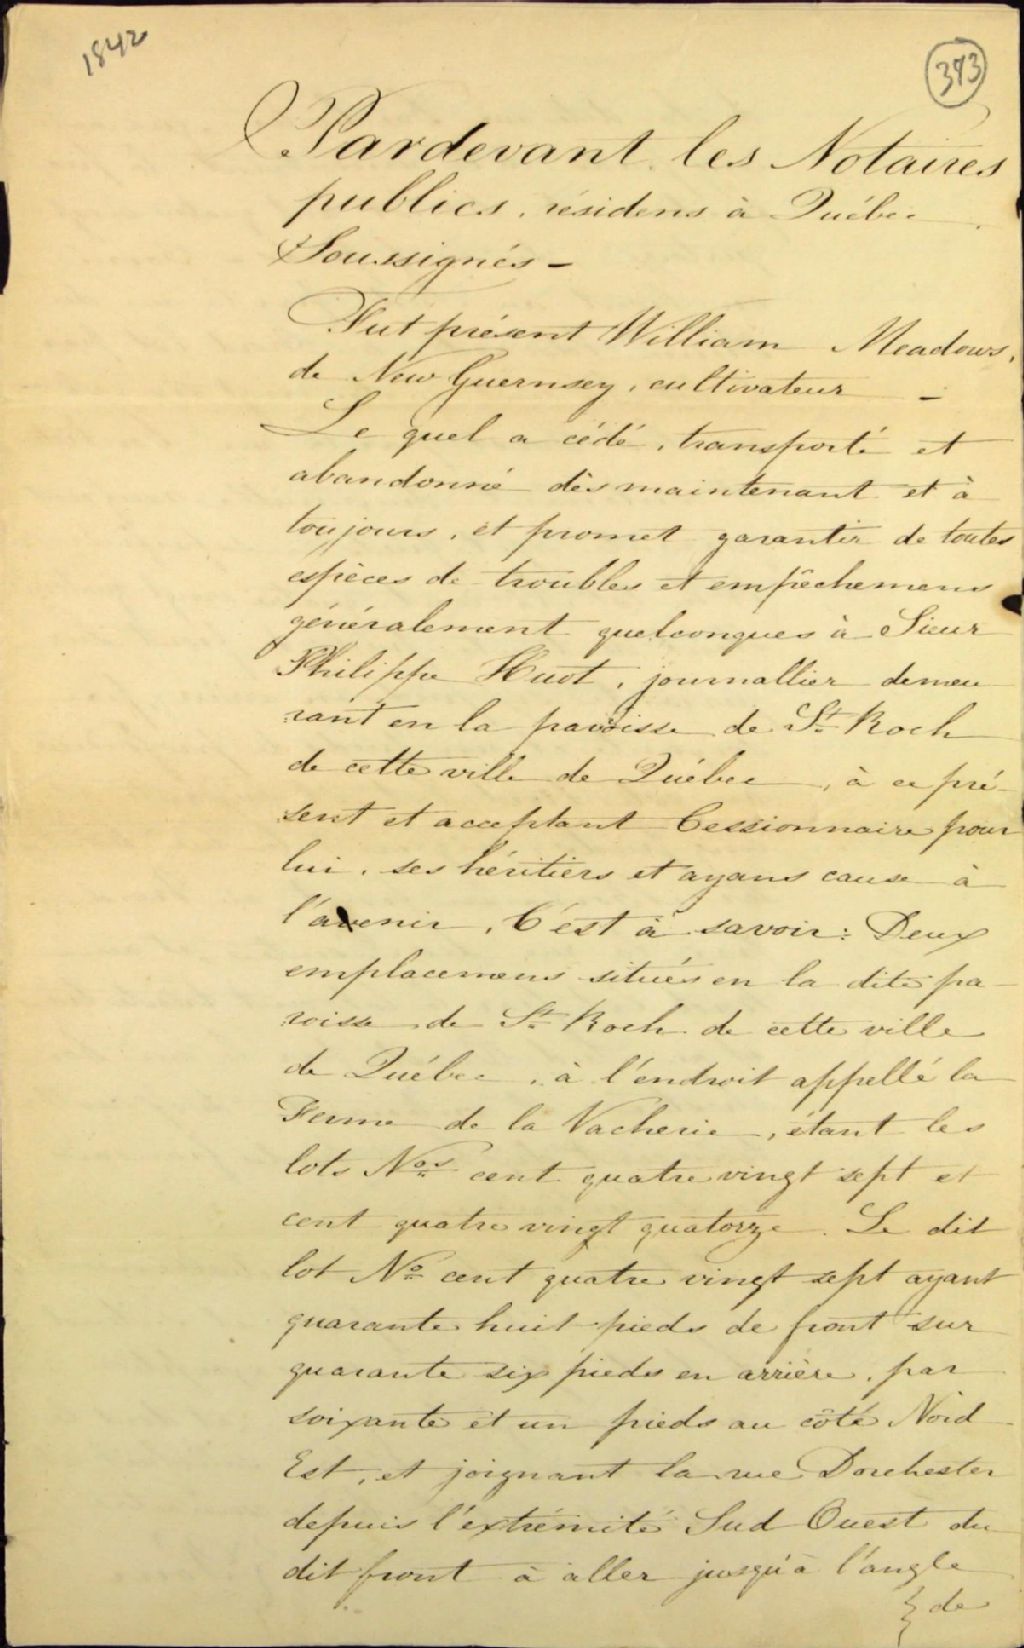 1842
373
Pardevant les Notaires
publics, résidens à Québec
Soussignés -
Fut présent William Meadows,
de New Guernsey, cultivateur -
Le quel a cédé, transporté et
abandonné dès maintenant et à
toujours, et promet garantir de toutes
espèces de troubles et empêchemens
généralement quelconques à Sieur
Philippe Huot, journallier demeu
rant en la paroisse de St. Roch
de cette ville de Québec, à ce pré-
sent et acceptant Cessionnaire pour
lui, ses héritiers et ayans cause à
l'avenir, C'est à savoir: Deux
emplacemens situés en la dite pa-
roisse de St. Roch de cette ville
de Québec, à l'endroit appellé la
Ferme de la Vacherie, étant les
lots Nos. cent quatre vingt sept et
cent quatre vingt quatorze. Le dit
lot No. cent quatre vingt sept ayant
quarante huit pieds de front sur
quarante six pieds en arrière, par
soixante et un pieds au côté Nord
Est, et joignant la rue Dorchester
depuis l'extrémité Sud Ouest du
dit front à aller jusqu'à l'angle
de